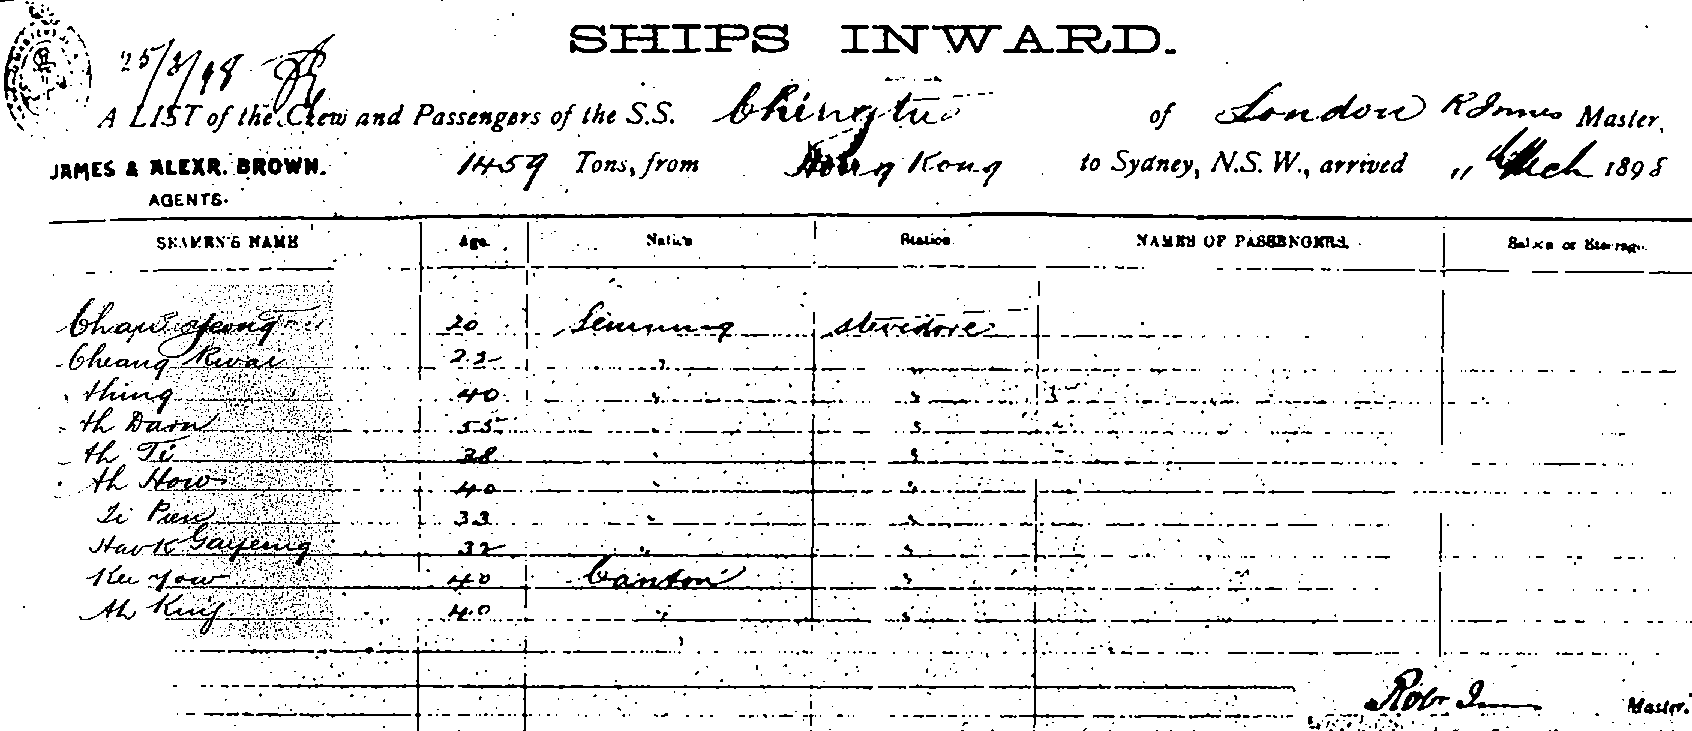 SHIPS INWARD.
25/3/98
A LIST of the Crew and Passengers of the S.S. Chingtu of London R Innes Master,
JAMES & ALEXR. BROWN. 1459 Tons, from Hong Kong to Sydney, N.S.W., arrived Mch 1898
AGENTS.
SEAMEN'S NAME Age. Native Station NAMES OF PASSENGERS. Saloon or Steerage.
20 stevedore
Cheang Kwai 22 " "
40 " "
Ah Darn 55 " "
Ah Ti 38 " "
Ah How 40 " "
33 " "
32 " "
Kee Yow 40 Canton "
Ah King 40 " "
Robt Innes Master.